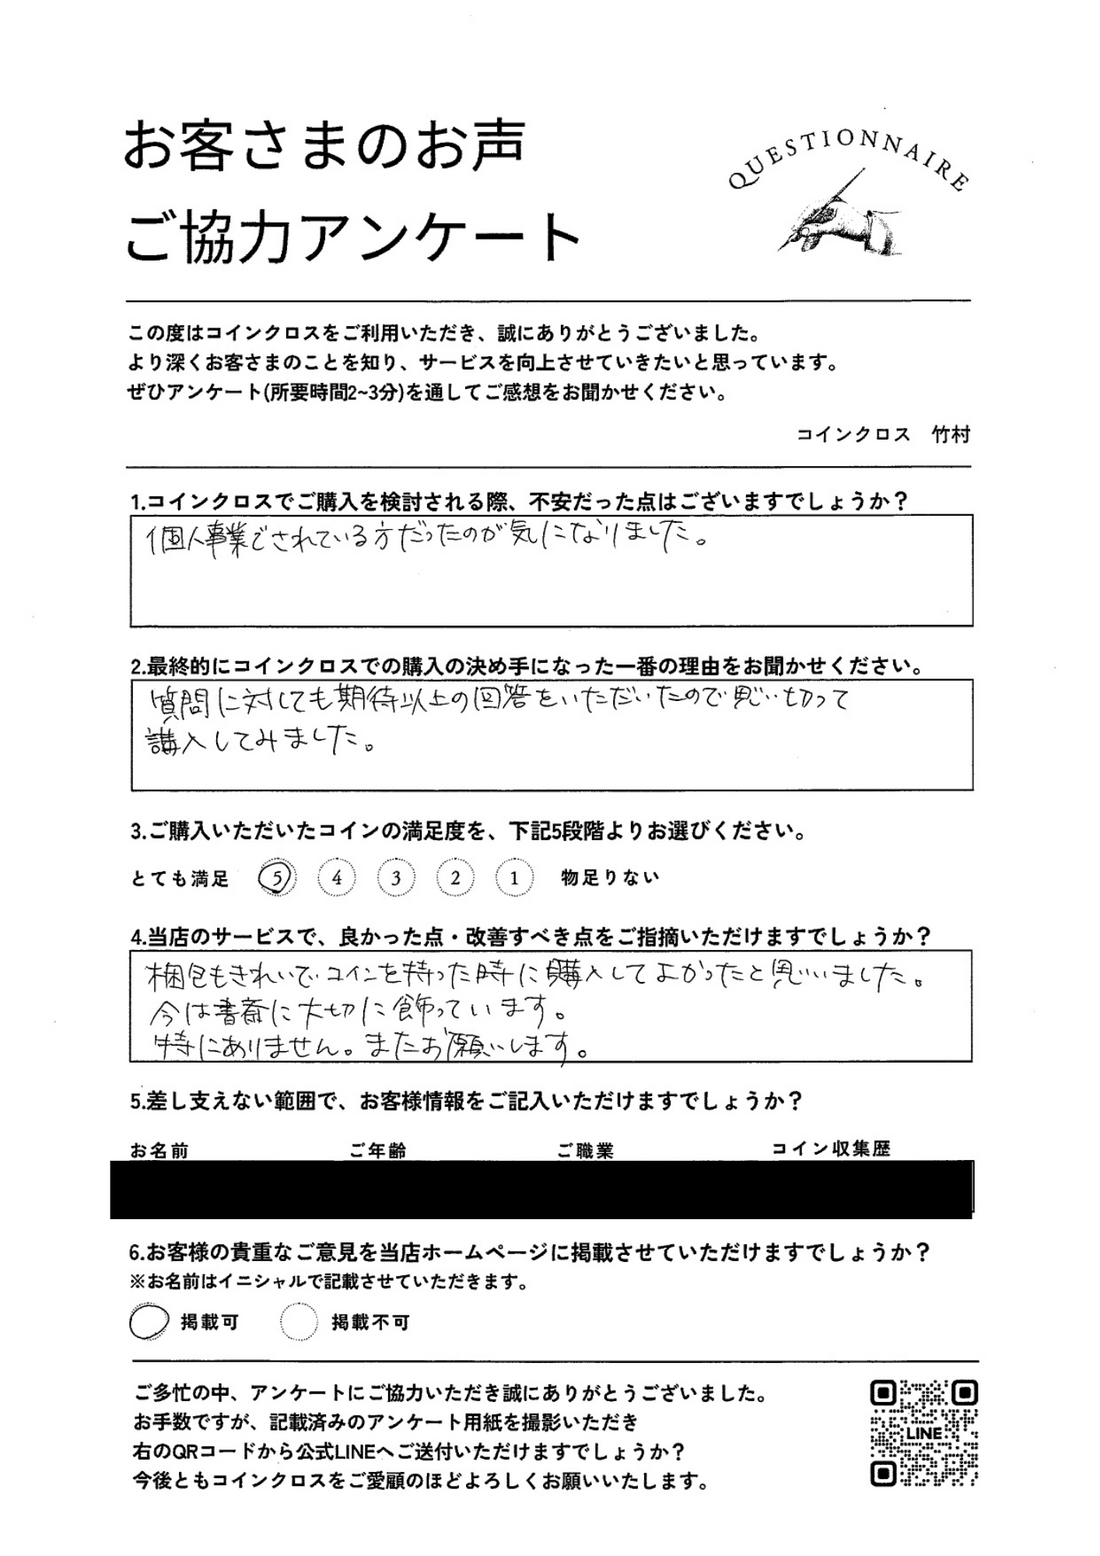 お客さまのお声
ご協力アンケート
QUESTIONNAIRE
この度はコインクロスをご利用いただき、誠にありがとうございました。
より深くお客さまのことを知り、サービスを向上させていきたいと思っています。
ぜひアンケート(所要時間2~3分)を通してご感想をお聞かせください。
コインクロス 竹村
1.コインクロスでご購入を検討される際、不安だった点はございますでしょうか？
個人事業でされている方だったのが気になりました。
2.最終的にコインクロスでの購入の決め手になった一番の理由をお聞かせください。
質問に対しても期待以上の回答をいただいたので思い切って
講入してみました。
3.ご購入いただいたコインの満足度を、下記5段階よりお選びください。
とても満足 5 4 3 2 1 物足りない
4.当店のサービスで、良かった点・改善すべき点をご指摘いただけますでしょうか？
梱包もきれいで コインを持った時に購入してよかったと思いました。
今は書斎に大切に飾っています。
特にありません。またお願いします。
5.差し支えない範囲で、お客様情報をご記入いただけますでしょうか？
お名前 ご年齢 ご職業 コイン収集歴
6.お客様の貴重なご意見を当店ホームページに掲載させていただけますでしょうか？
※お名前はイニシャルで記載させていただきます。
掲載可 掲載不可
ご多忙の中、アンケートにご協力いただき誠にありがとうございました。
お手数ですが、記載済みのアンケート用紙を撮影いただき
右のQRコードから公式LINEへご送付いただけますでしょうか？
今後ともコインクロスをご愛顧のほどよろしくお願いいたします。
LINE